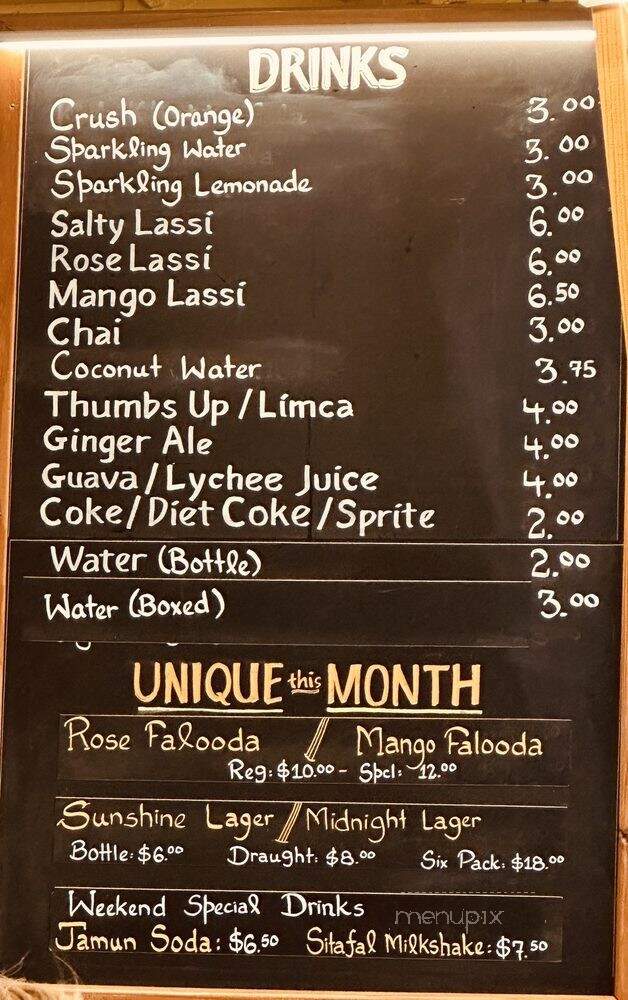 DRINKS
Crush (Orange) 3.00
Sparkling Water 3.00
Sparkling Lemonade 3.00
Salty Lassi 6.00
Rose Lassi 6.00
Mango Lassi 6.50
Chai 3.00
Coconut Water 3.75
Thumbs Up / Limca 4.00
Ginger Ale 4.00
Guava / Lychee Juice 4.00
Coke / Diet Coke / Sprite 2.00
Water (Bottle) 2.00
Water (Boxed) 3.00
UNIQUE this MONTH
Rose Falooda / Mango Falooda
Reg: $10.00 - Spcl: 12.00
Sunshine Lager / Midnight Lager
Bottle: $6.00 Draught: $8.00 Six Pack: $18.00
Weekend Special Drinks
menupix
Jamun Soda: $6.50 Sitafal Milkshake: $7.50